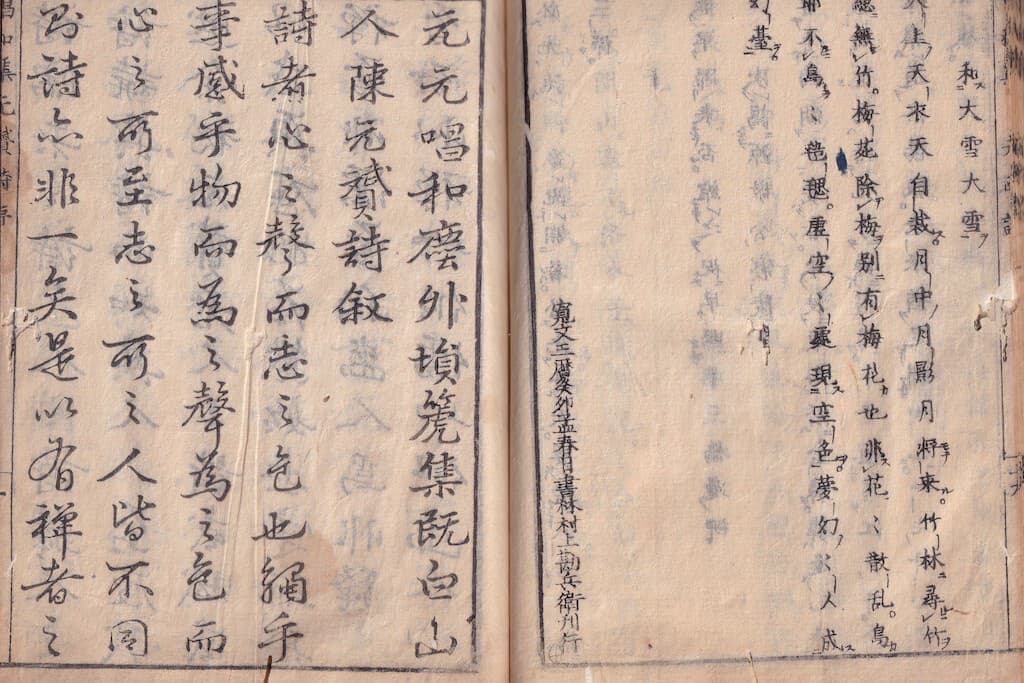 和大雪大雪
上天衣天自裁月中月影月將來。竹林尋竹
總無竹。梅花除梅別有梅花也非花〻散亂。鳥
耶不鳥〻毯毯。虛空〻裏現空色夢幻〻人成
幻臺
寬文三曆癸卯孟春日書林村上勘兵衛刊行
元元唱和塵外塤篪集既白山
人陳元贇詩敘
詩者心之聲而志之色也觸乎
事感乎物而為之聲為之色而
心之所至志之所之人皆不同
則詩亦非一矣是以有禪者之
唱和集元贇詩序